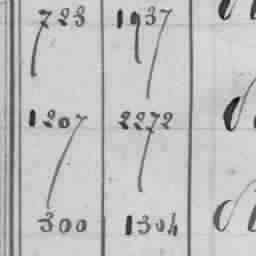 723 1937
1207 2272
300 1304